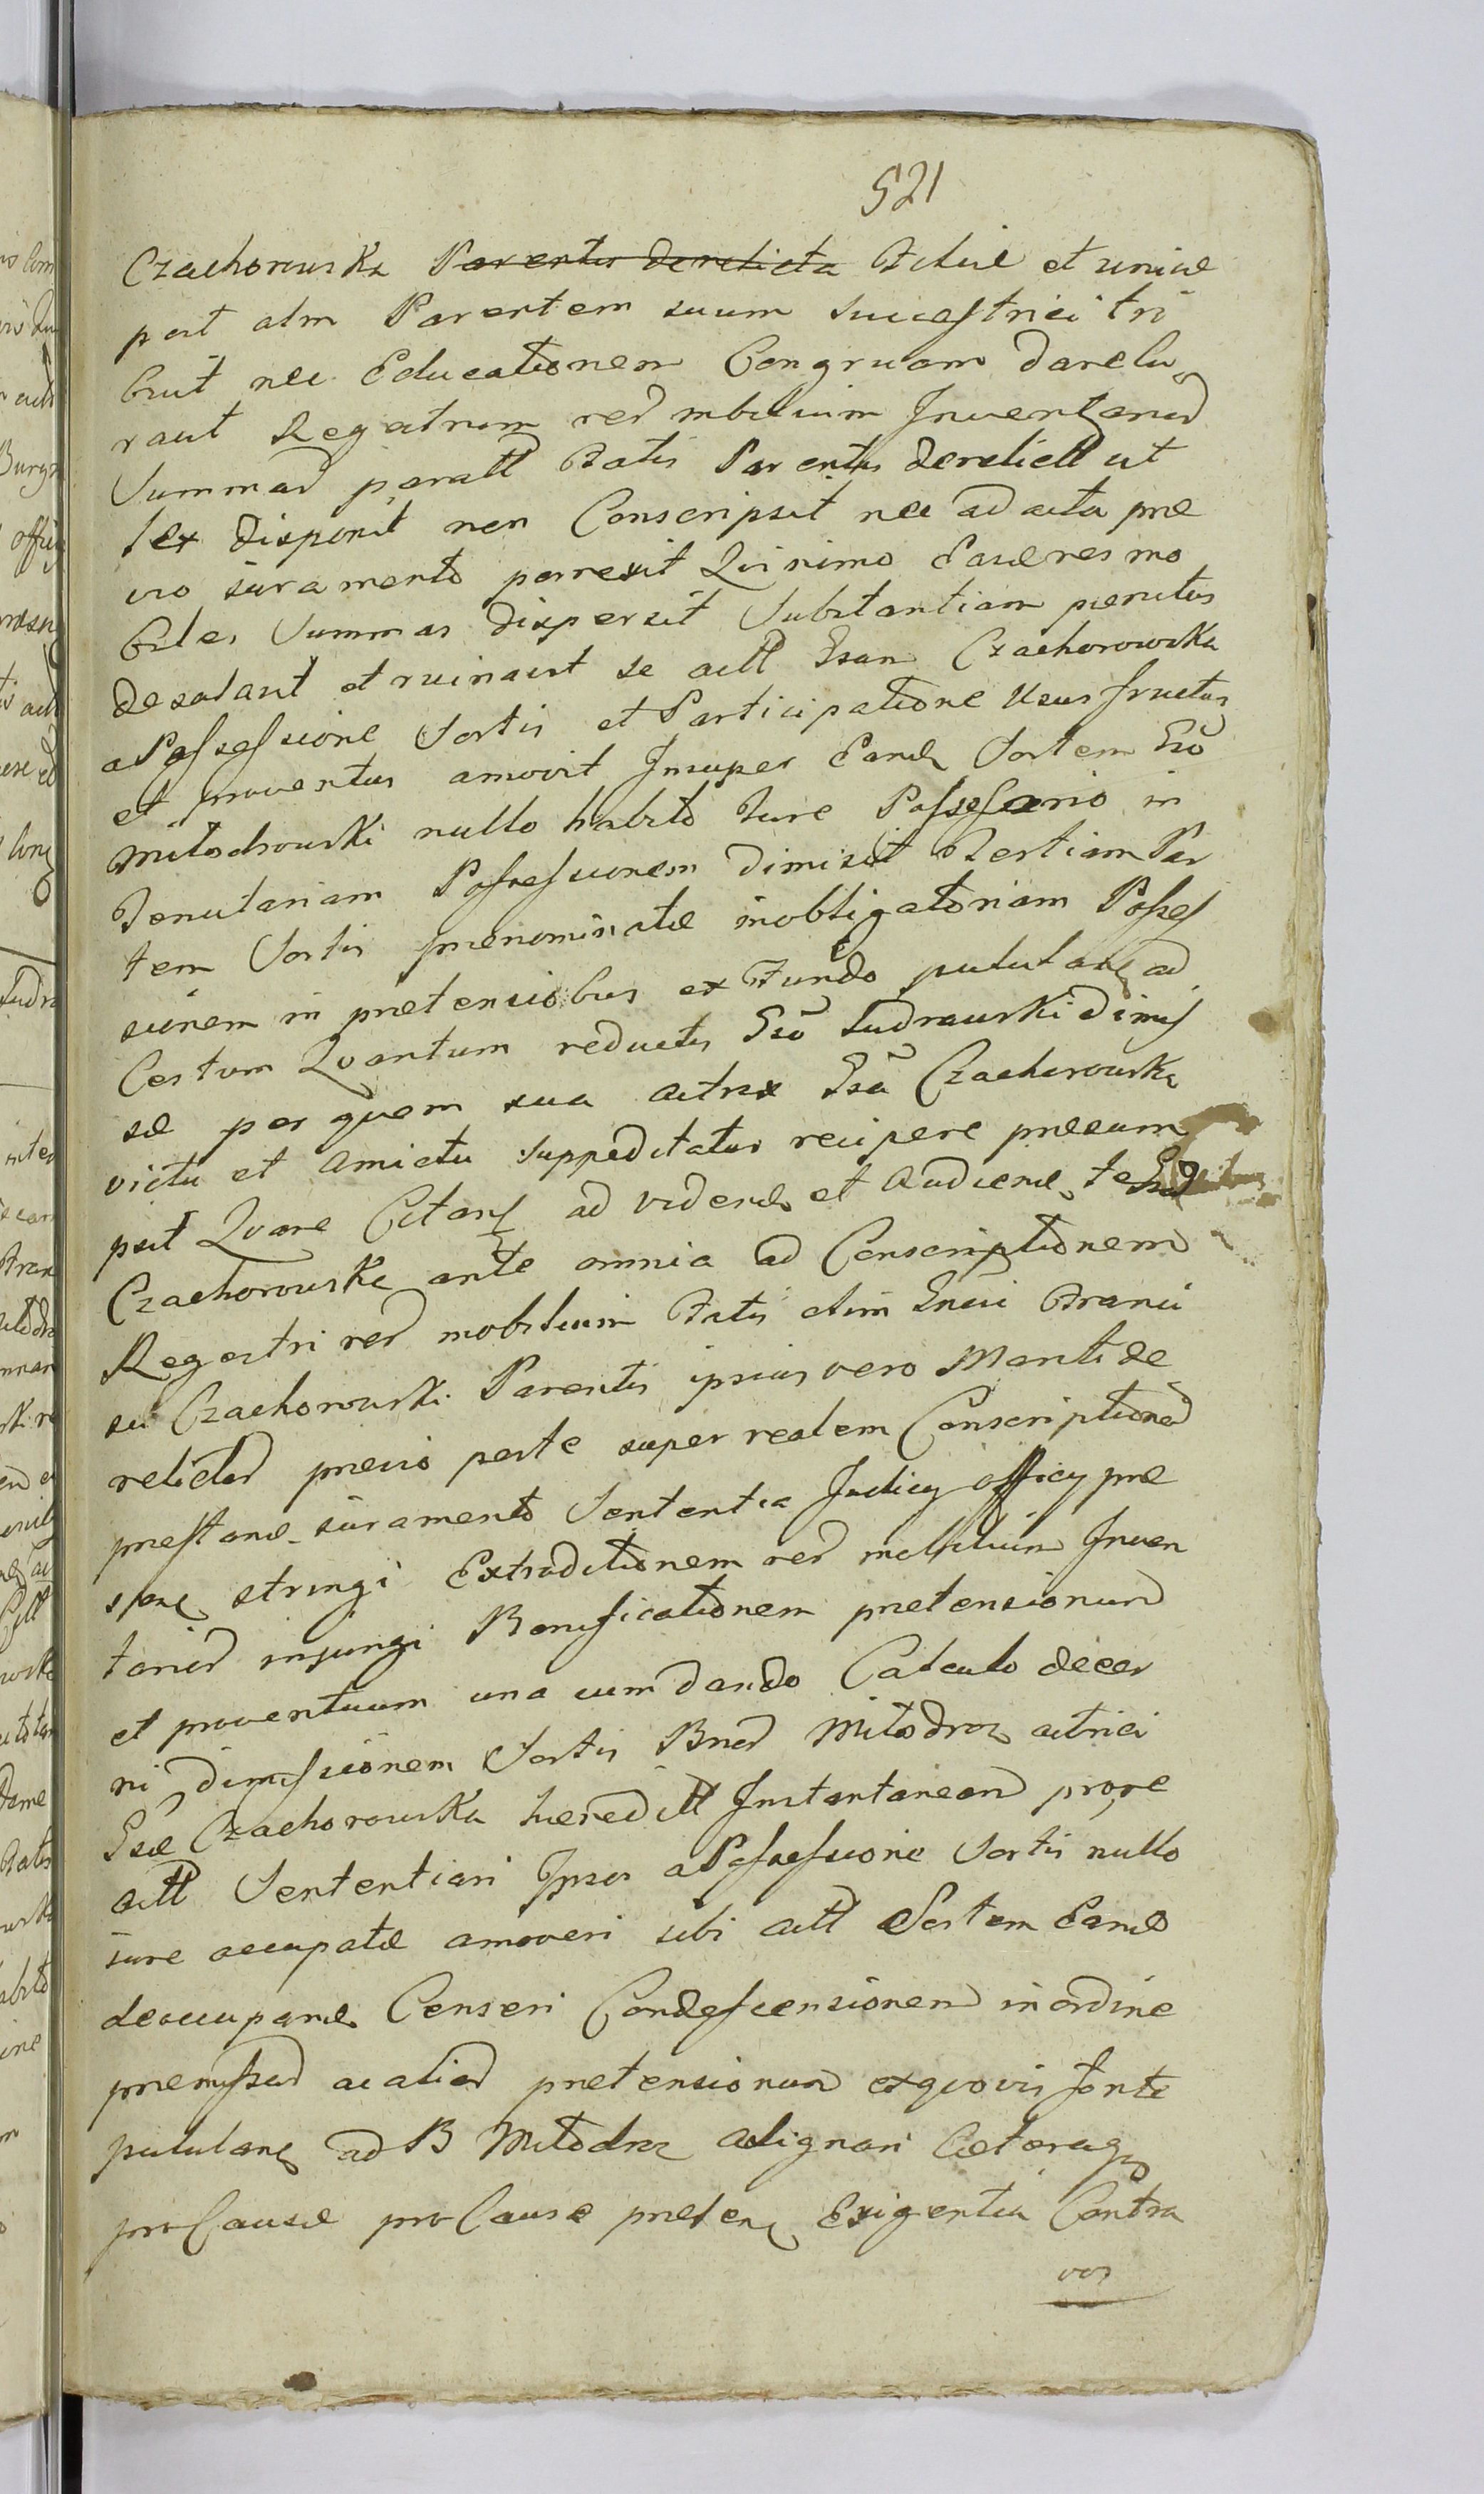 521
Czachorowska Parentis derelicta Filiæ et unicæ
post olm Parentem suum Successtrici tri
buit nec Educationem Congruam dare cu
ravit Regestrum red mobilium Inventand
Summad paratt Fatis Parentis derelictt ut
lex disponit non Conscripsit nec ad acta præ
vio juramento porrexit Qvinimo Easdæ res mo
biles Summas dispersit Substantiam penitus
desolavit et ruinavit se actt Gsam Czachorowska
a Possessione Sortis et Participatione Usus fructus
et proventus amovit Insuper Eand Sortem Gso
Miłodrowski nullo habito Jure Possessorio in
Tenutariam Possessionem dimisit Tertiam Par
tem Sortis prænominatæ inobligatoriam Posses
sionem in prætensiobus ex Fundo pululan ad
Certum Qvantum reductis Gso Sudrawski dimis
sæ per quem sua actrix Gsa Czachorowska
victu et amictu suppeditatur recipere præsum
psit Qvare Citans ad videnđ et audienđ te Gsa
Czachorowska ante omnia ad Conscriptionem
Regestri red mobilium Fatis olim Gnsi Franci
sci Czachorowski Parentis ipsius vero Mariti de
relictod prævio parte super realem Conscriptioned
præstanđ juramento Sententia Judicy officy præ
sen stringi Extraditionem red mobilium Inven
tariod injungi Bonificationem prætensionum
et proventuum una cum dando Calculo decer
ni dimissionem Sortis Bnod Miłodroz actrici
Gsæ Czachorowska hæreditt Instantaneam prore
actt Sententiari Ipsos a Possessione Sortis nullo
jure occupatæ amoveri sibi actt Sortem Eand
deoccupanđ Censeri Condescensionem in ordine
præmissod ac aliod prætensionum ex qvovis fonte
pululan ad B Miłodroz adsignari Cæteraq
pro Causæ pro Causæ præsen Exigentia Contra
vos